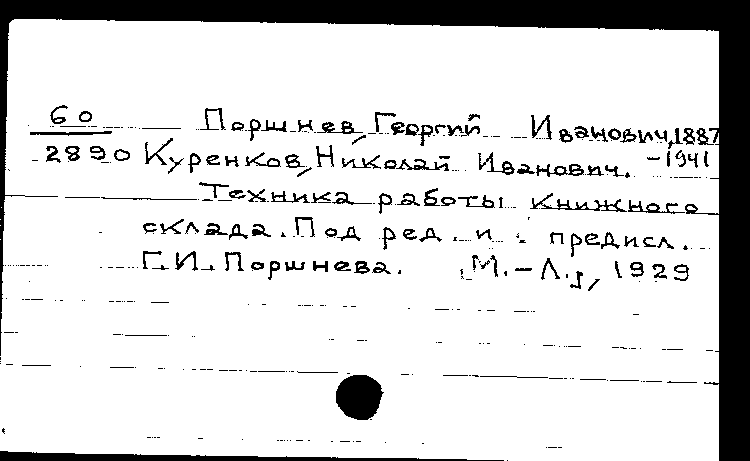 60 Поршнев, Георгий Иванович, 1887
2890 Куренков, Николай Иванович. -1941
Техника работы книжного
склада. Под ред. и предисл.
Г.И. Поршнева. М.-Л., 1929